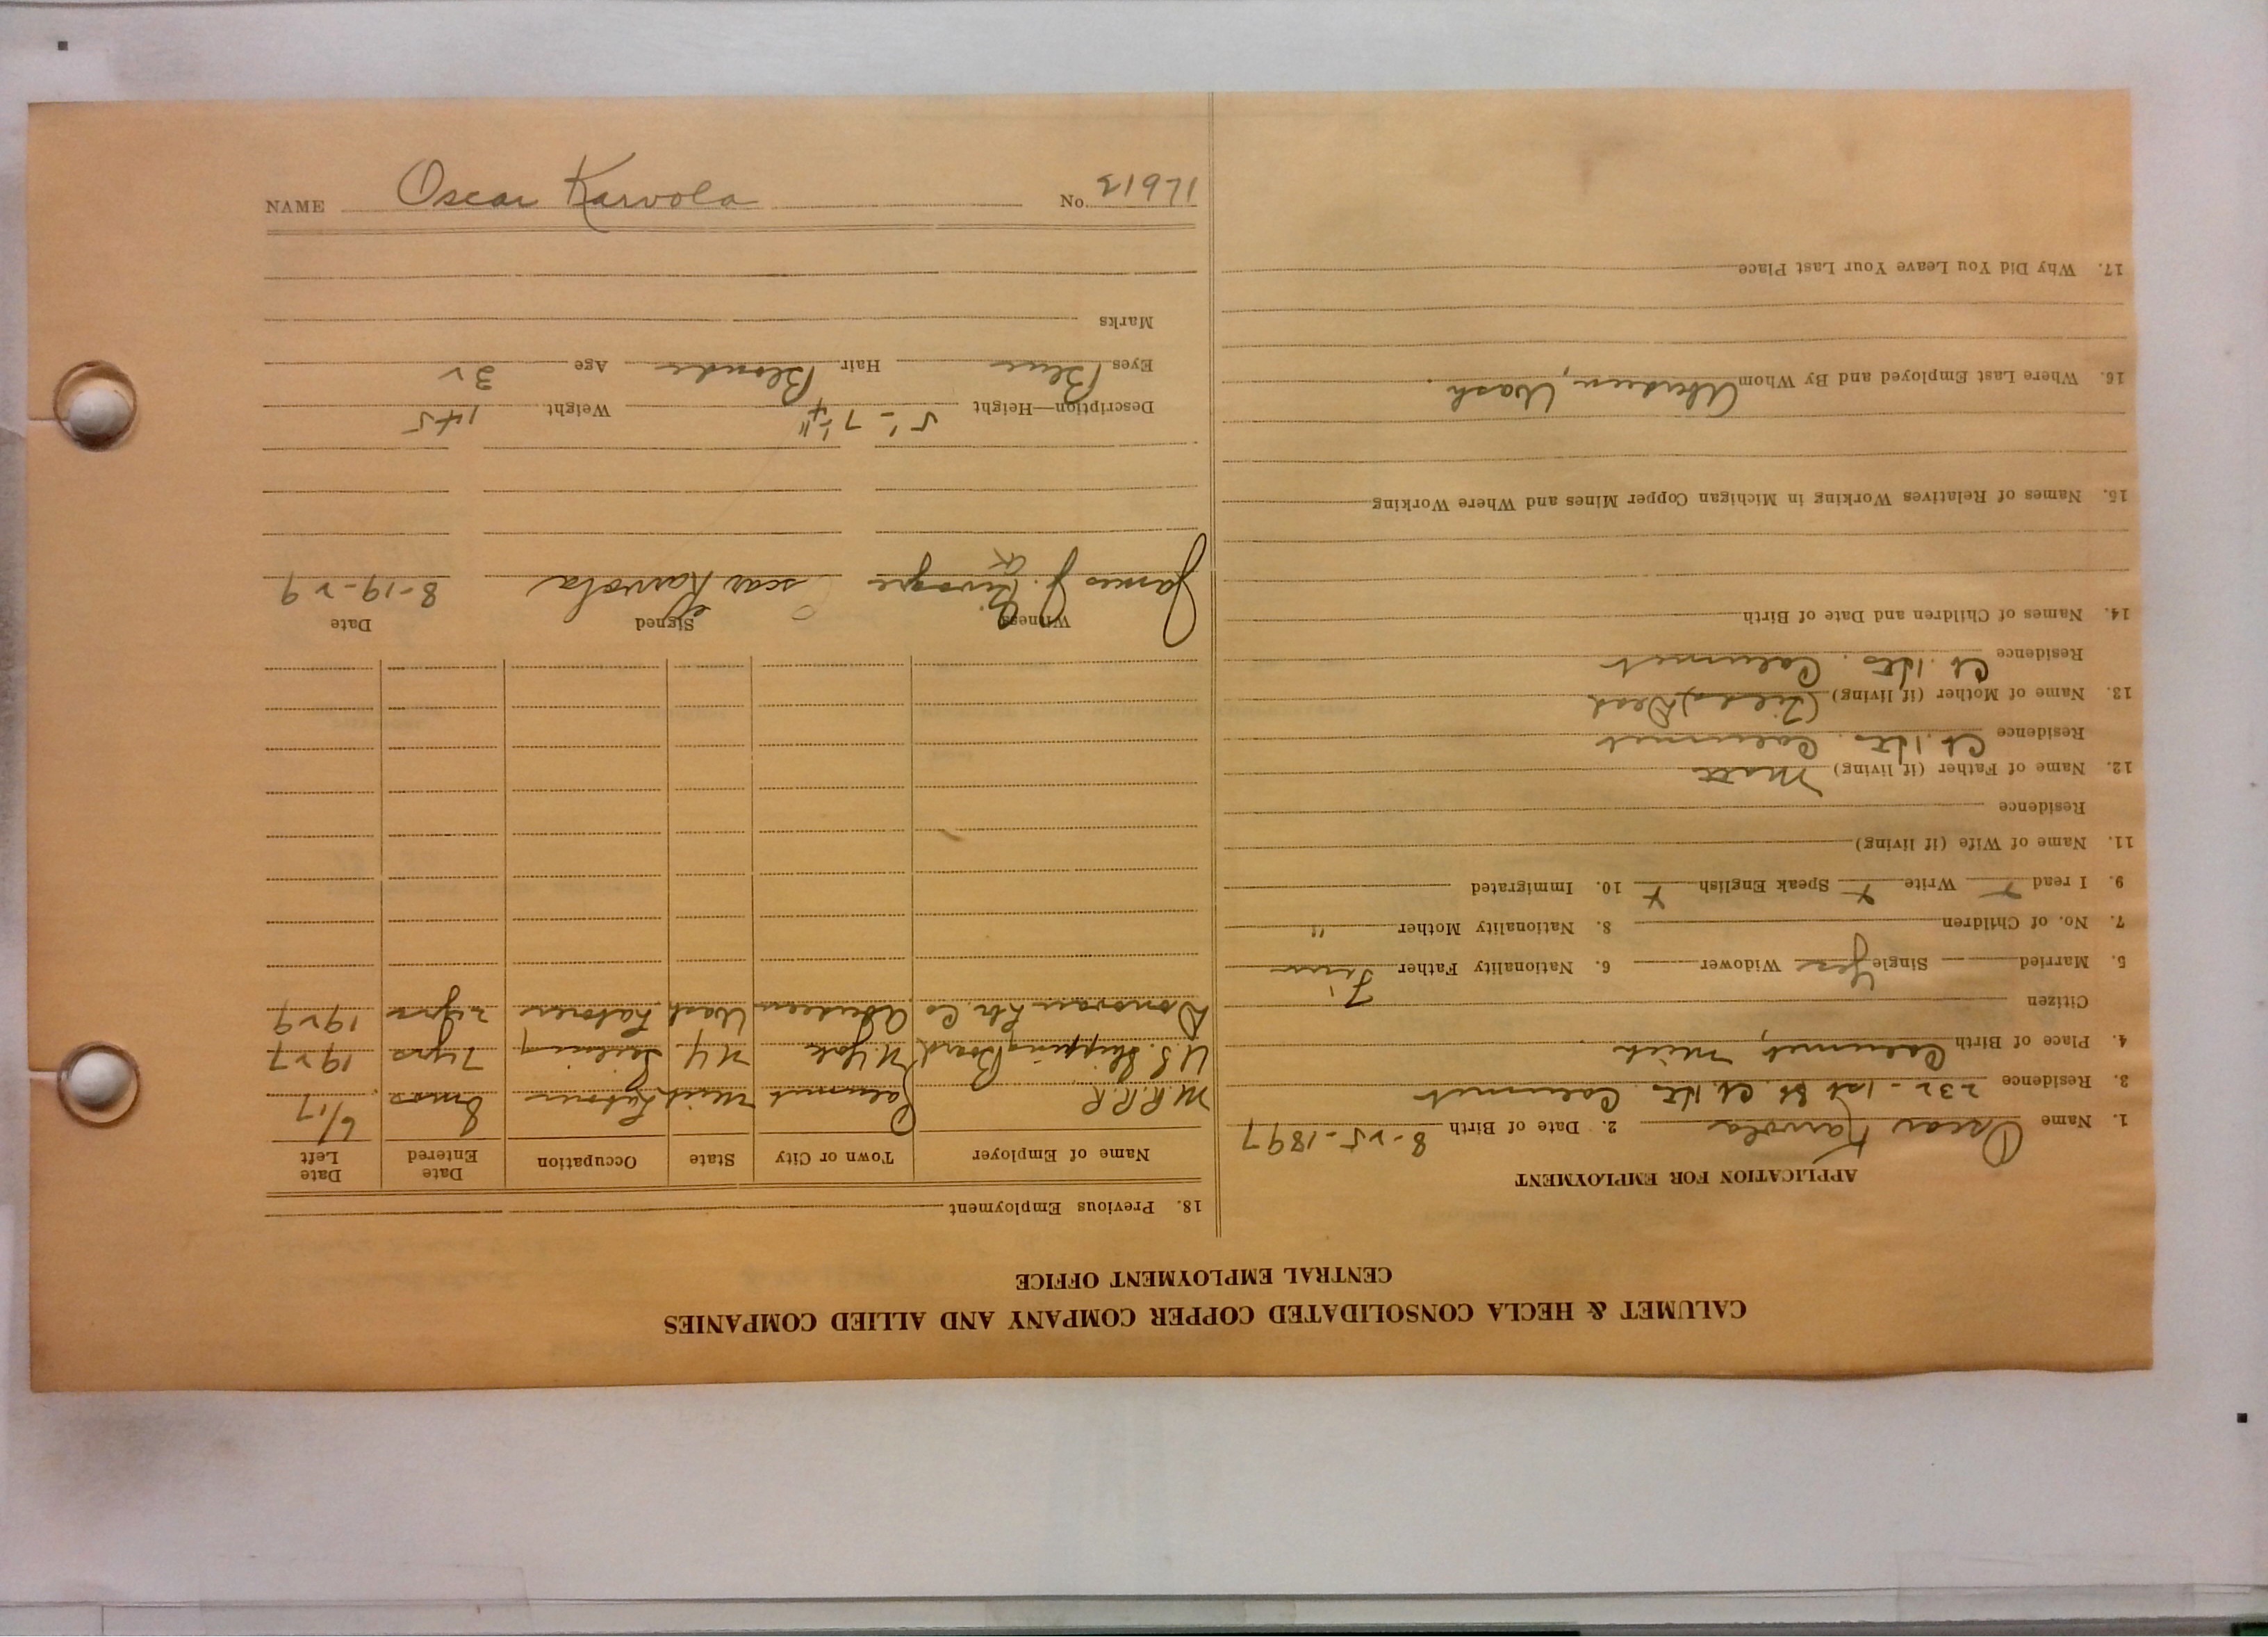 CALUMET & HECLA CONSOLIDATED COPPER COMPANY AND ALLIED COMPANIES
CENTRAL EMPLOYMENT OFFICE
APPLICATION FOR EMPLOYMENT
1. Name Oscar Karvola 2. Date of Birth 8-25-1897
3. Residence 232-1st St. Ct. Hts. Calumet
4. Place of Birth Calumet, Mich.
Citizen
5. Married Single Yes Widower 6. Nationality Father Finn
7. No. of Children 8. Nationality Mother "
9. I read x Write x Speak English x 10. Immigrated
11. Name of Wife (if living)
Residence
12. Name of Father (if living) Matt
Residence Ct. Hts. Calumet
13. Name of Mother (if living) (Hilda) Dead
Residence Ct. Hts. Calumet
14. Names of Children and Date of Birth
15. Names of Relatives Working in Michigan Copper Mines and Where Working
16. Where Last Employed and By Whom Aberdeen, Wash.
17. Why Did You Leave Your Last Place
18. Previous Employment
Name of Employer Town or City State Occupation Date Entered Date Left
M.R.R.R Calumet Mich Laborer 8 mos 6/17
U.S. Shipping Board N. York N.Y. Sailing 7 yrs 1927
Donovan Lbr. Co Aberdeen Wash Laborer 2 yrs 1929
Witness Signed Date
James J. Oscar Karvola 8-19-29
Description—Height 5'-7 1/4" Weight 145
Eyes Blue Hair Blonde Age 32
Marks
NAME Oscar Karvola No. 21971